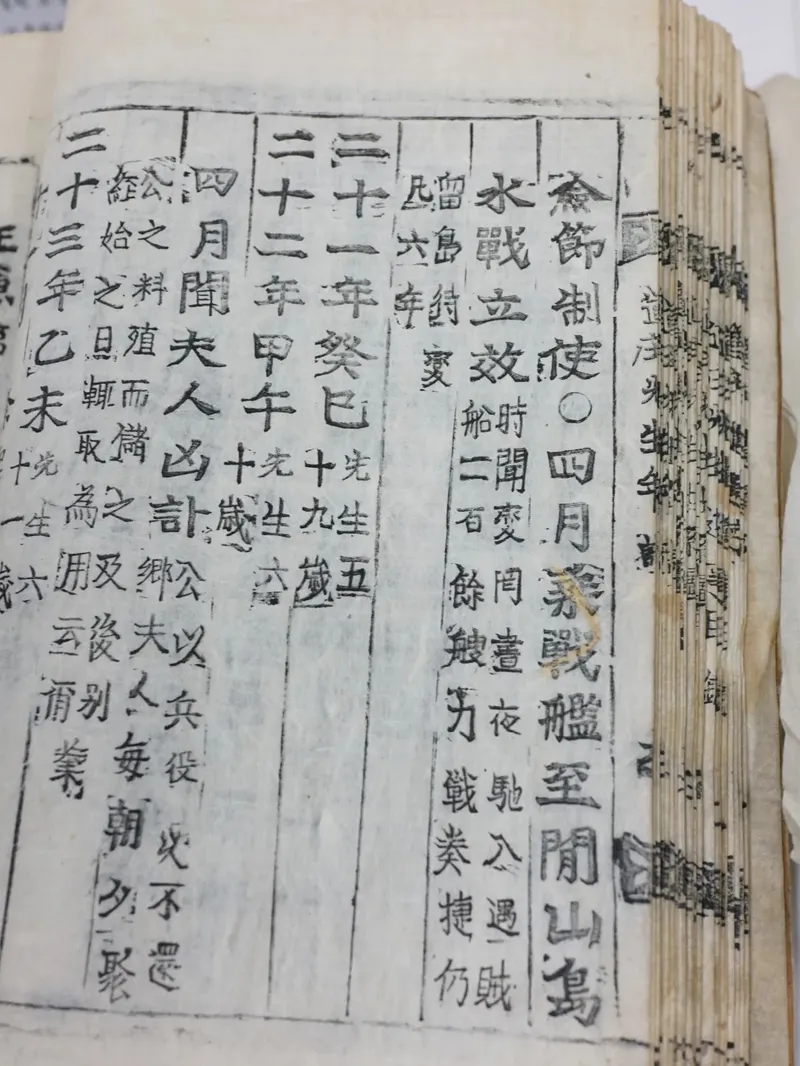 僉節制使○四月乘戰艦至閒山島
水戰立效
時聞変罔晝夜馳入遇賊
船二百餘艘力戰奏捷仍
留島待变
凡六年
二十一年癸巳
先生五
十九歲
二十二年甲午
先生六
十歲
四月聞夫人凶訃
公以兵役久不還
鄉夫人每朝夕聚
公之料殖而儲之及後别
経始之日輒取為用云爾業
二十三年乙未
先生六
十一歲